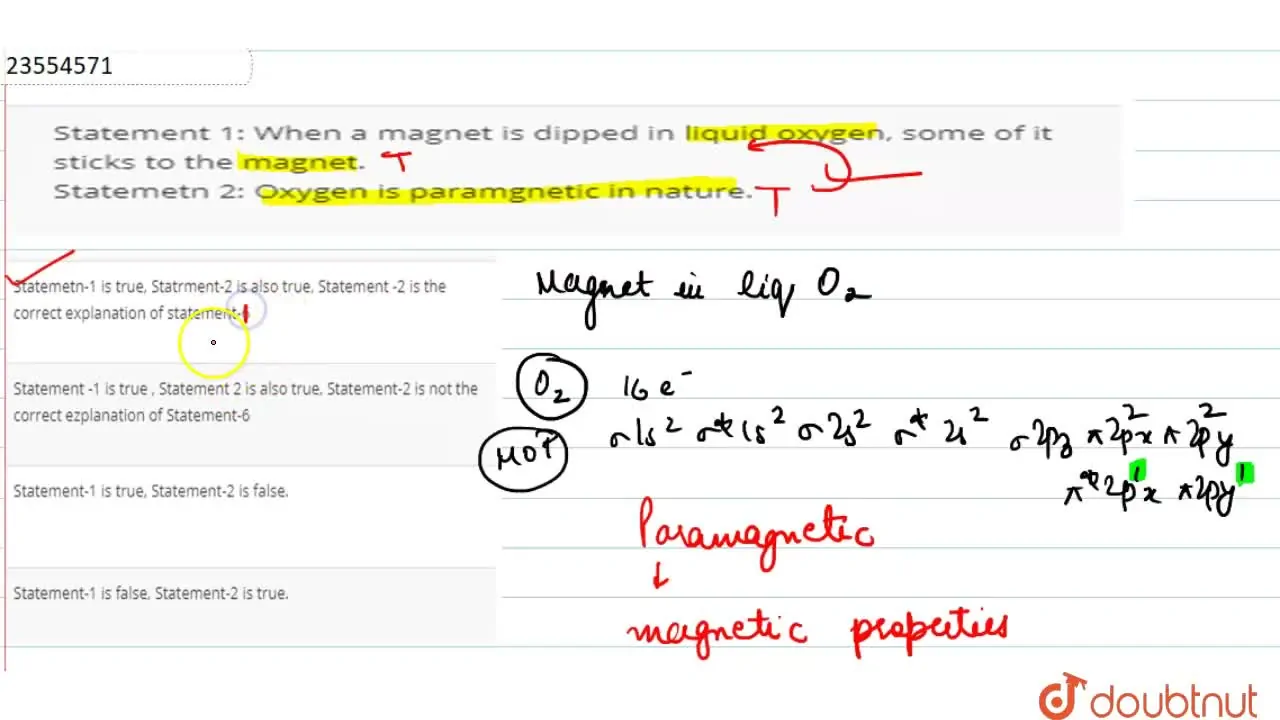 23554571
Statement 1: When a magnet is dipped in liquid oxygen, some of it
sticks to the magnet. T
Statemetn 2: Oxygen is paramgnetic in nature. T
Statemetn-1 is true, Statrment-2 is also true, Statement -2 is the
correct explanation of statement-6 1
Statement -1 is true , Statement 2 is also true, Statement-2 is not the
correct ezplanation of Statement-6
Statement-1 is true, Statement-2 is false.
Statement-1 is false, Statement-2 is true.
Magnet in liq O₂
O₂ 16 e⁻
MOT σ1s² σ*1s² σ2s² σ*2s² σ2pz π2p²x π2p²y
π*2p¹x π2py¹
Paramagnetic
↓
magnetic properties
doubtnut